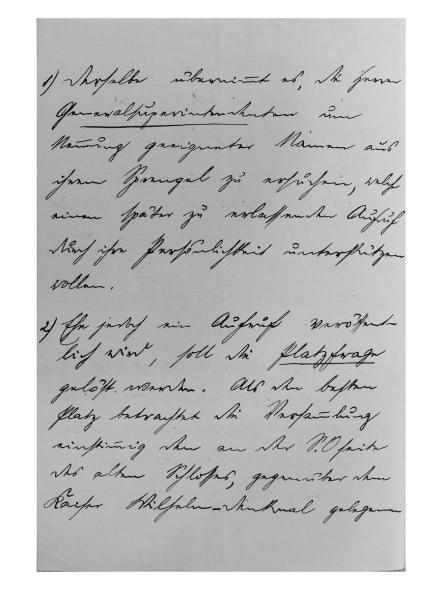 1) Derselbe übernimmt es, die Herren
Generalsuperintendenten um
Nennung geeigneter Namen aus
ihrem Sprengel zu ersuchen, welche
einen später zu erlassenden Aufruf
durch ihre Persönlichkeit unterstützen
wollen.
2) Ehe jedoch ein Aufruf veröffent-
lich wird, soll die Platzfrage
gelöst werden. Als den besten
Platz betrachtet die Versammlung
einstimmig den an der S.O seite
des alten Schlosses, gegenüber dem
Kaiser Wilhelm-Denkmal gelegenen